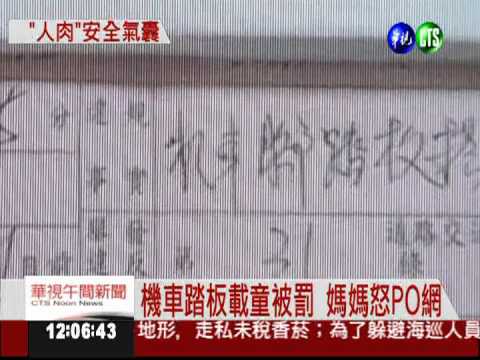 "人肉"安全氣囊
華視 CTS
分 違規
機車腳踏板
事實
舉發
違反
第 3
道路交
條
日
華視午間新聞
CTS Noon News
機車踏板載童被罰 媽媽怒PO網
12:06:43 地形，走私未稅香菸；為了躲避海巡人員